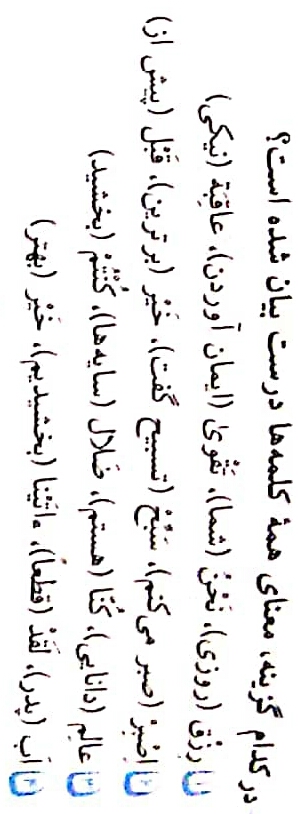 در کدام گزینه، معنای همهٔ کلمه‌ها درست بیان شده است؟
۱ رِزْق (روزی)، نَحْنُ (شما)، تَقْویٰ (ایمان آوردن)، عاقِبَة (نیکی)
۲ اِصْبِرْ (صبر می‌کنم)، سَبِّحْ (تسبیح گفت)، خَیْر (برترین)، قَبْل (پیش از)
۳ عالِم (دانایی)، کُنّا (هستم)، ضَلال (سایه‌ها)، کُنْتُمْ (بخشید)
۴ اَب (پدر)، لَقَدْ (قطعاً)، ءاتَیْنا (بخشیدیم)، خَیْر (بهتر)